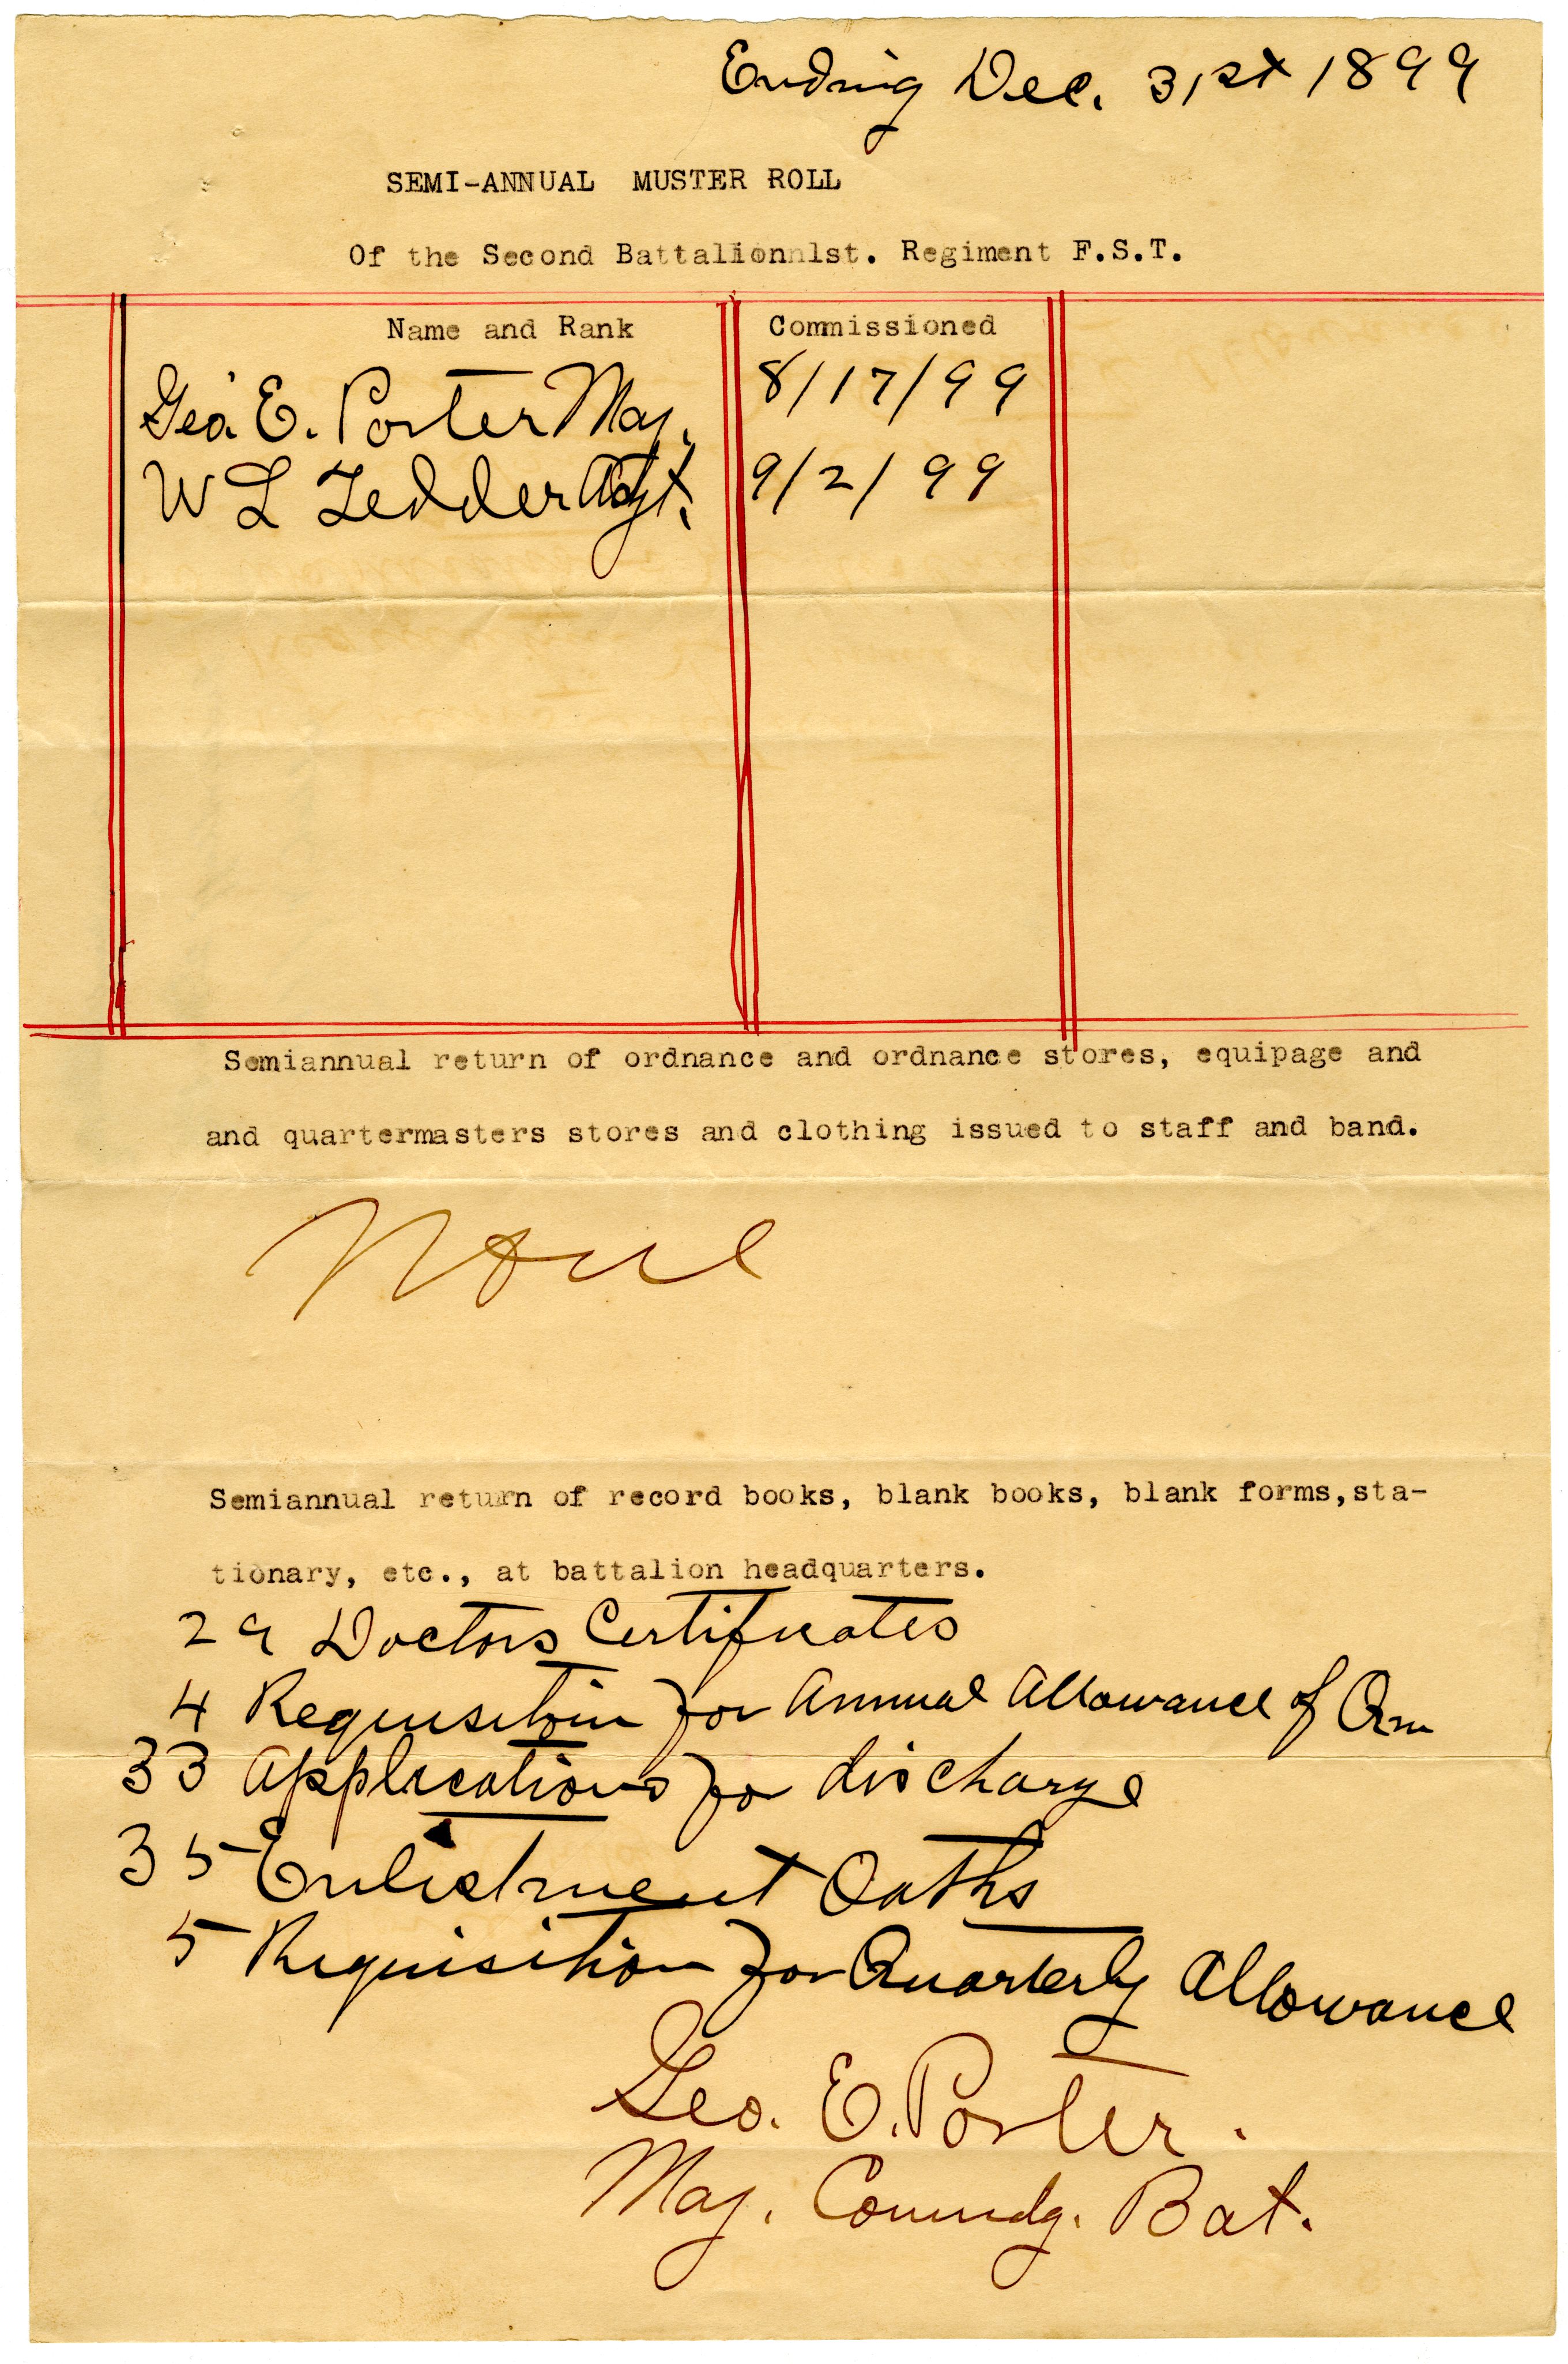 Ending Dec. 31st 1899
SEMI-ANNUAL MUSTER ROLL
Of the Second Battalionn1st. Regiment F.S.T.
Name and Rank Commissioned
Geo. E. Porter Maj. 8/17/99
W L Tedder Adgt. 9/2/99
Semiannual return of ordnance and ordnance stores, equipage and
and quartermasters stores and clothing issued to staff and band.
None
Semiannual return of record books, blank books, blank forms,sta-
tionary, etc., at battalion headquarters.
29 Doctors Certificates
4 Requisition for Annual Allowance of Orn
33 Applications for discharge
35 Enlistment Oaths
5 Requisition for Quarterly Allowance
Geo. E. Porter.
Maj. Commdg. Bat.